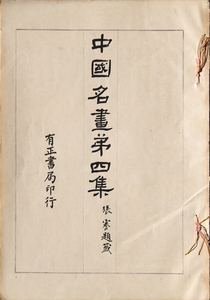 中國名畫第四集
張謇題簽
有正書局印行